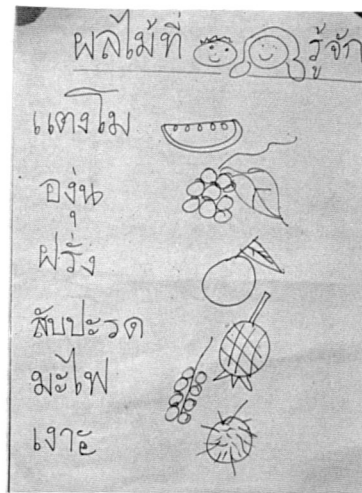 ผลไม้ที่ รู้จัก
แตงโม
องุ่น
ฝรั่ง
สับปะรด
มะไฟ
เงาะ